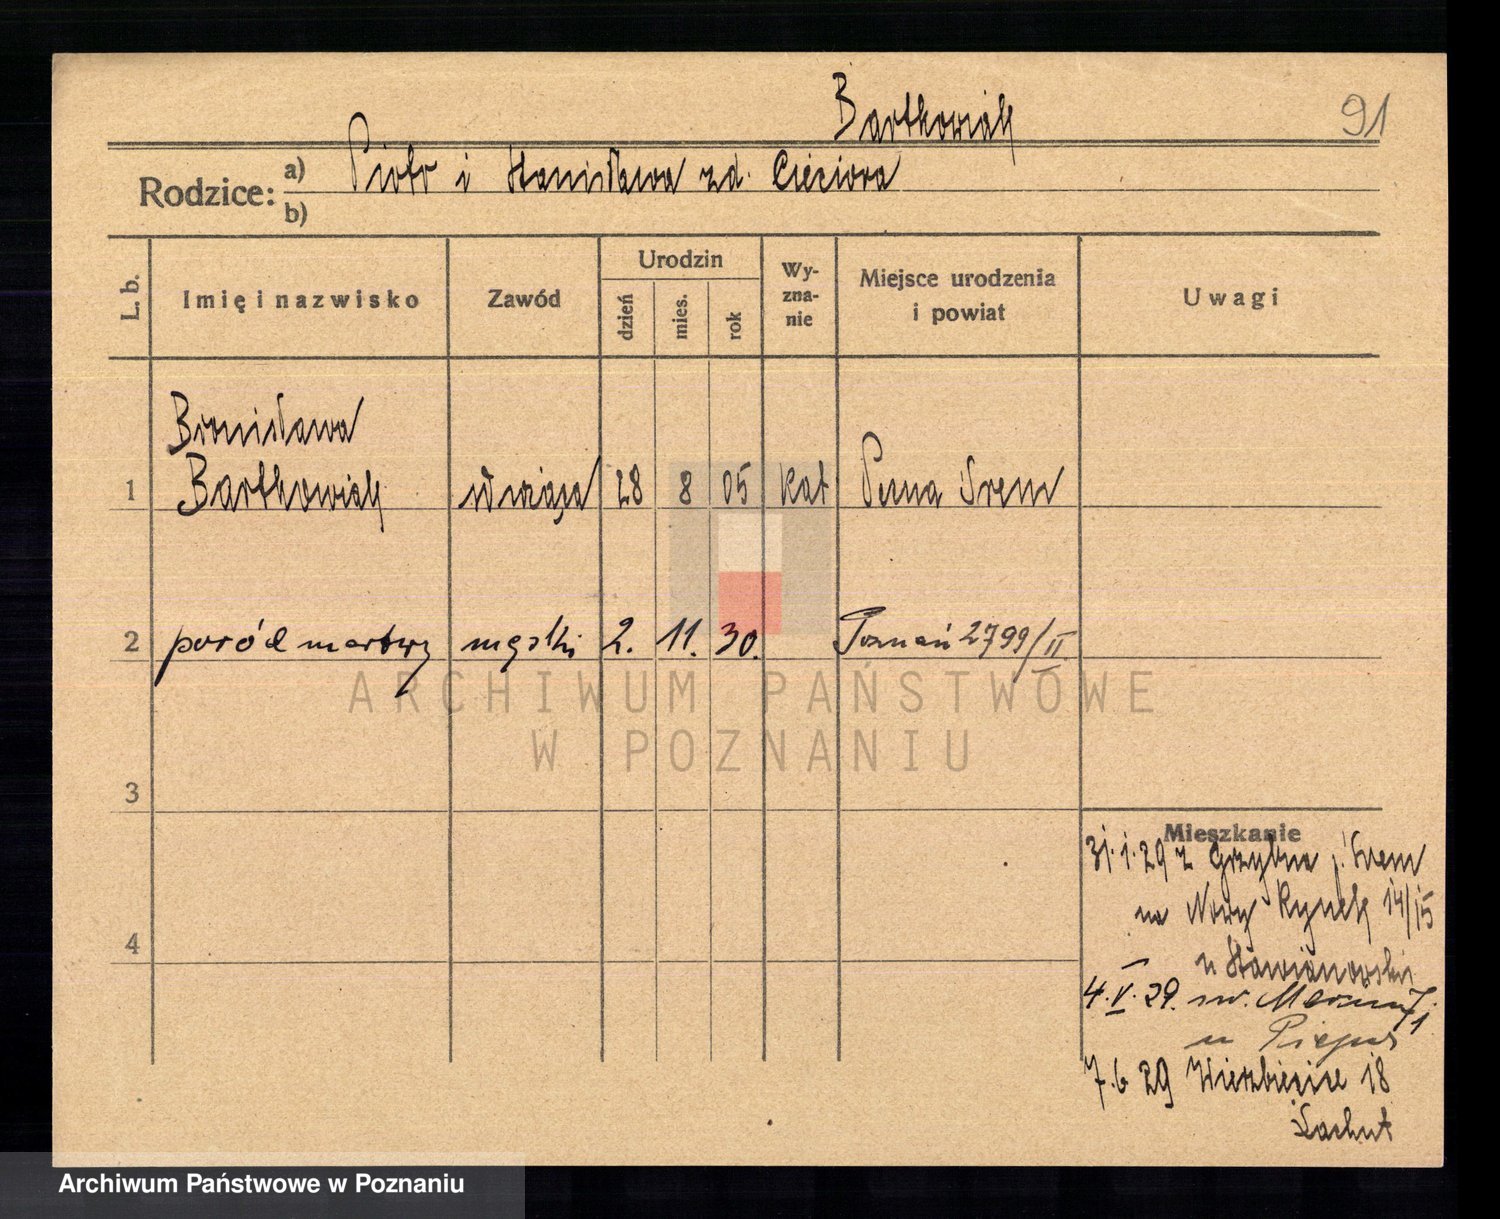 Bartkowiak
91
Rodzice: a) Piotr i Stanisława zd. Cieciora
b)
L. b. Imię i nazwisko Zawód Urodzin dzień mies. rok Wy-zna-nie Miejsce urodzenia i powiat Uwagi
Bronisława
1 Bartkowiak służąca 28 8 05 kat Psarskie Śrem
2 poród martwy męski 2. 11. 30. Poznań 2799/II
ARCHIWUM PAŃSTWOWE
W POZNANIU
3
Mieszkanie
31.1.29 z Grzybna p. Śrem
na Nowy Rynek 14/15
4
u Stawianowski
4.V.29. św. Marcin 71
u
7.6 29 Wierzbięcice 18
Łachut
Archiwum Państwowe w Poznaniu